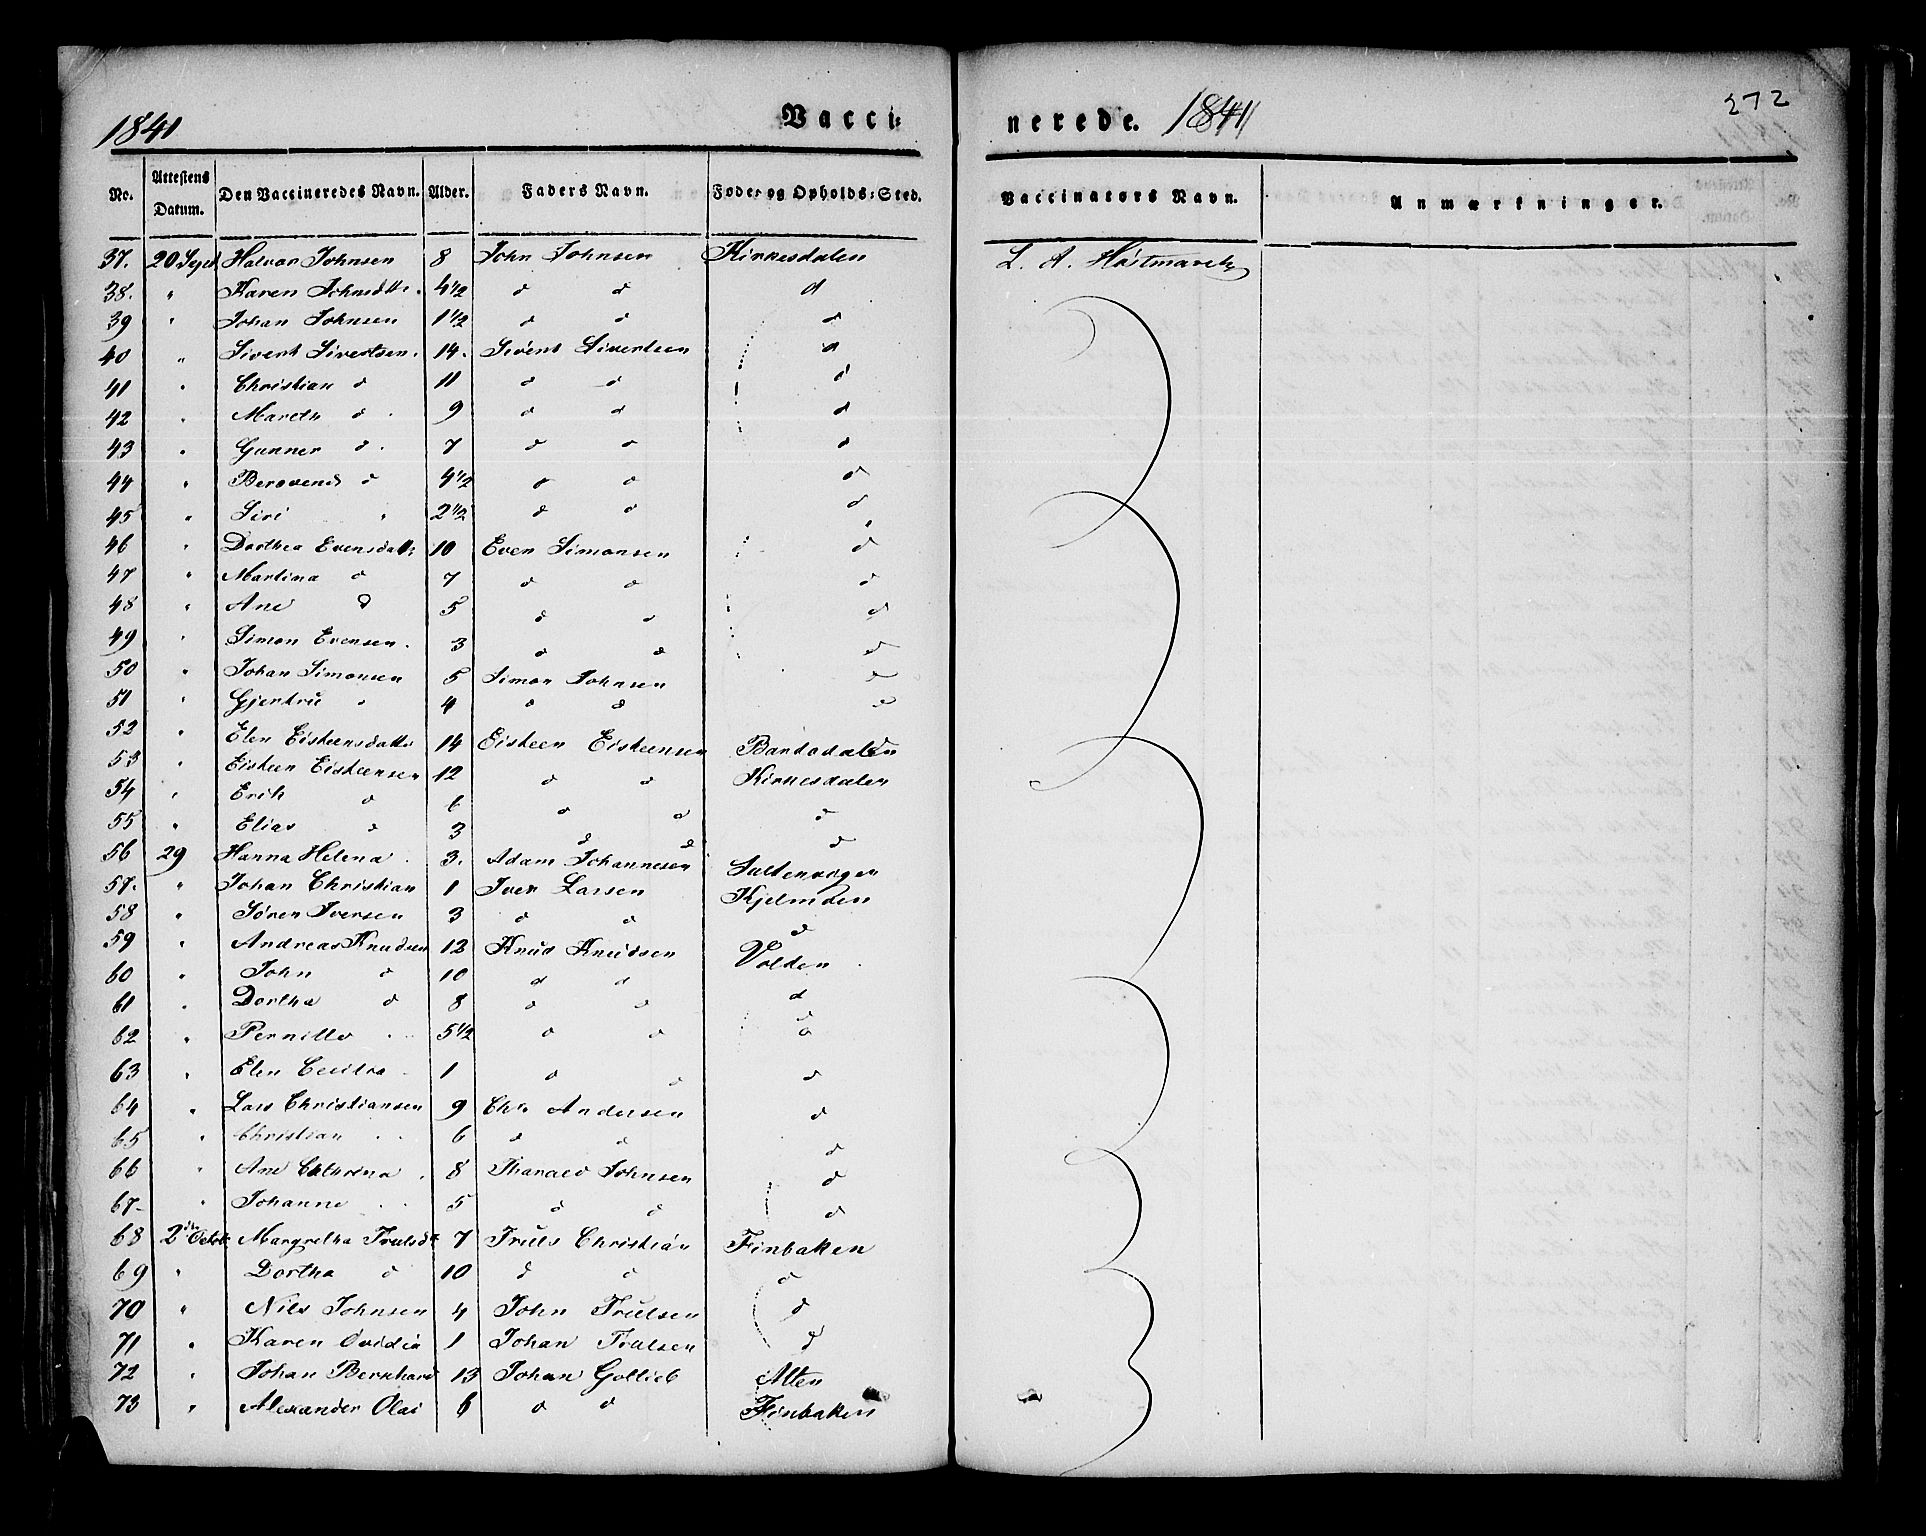 1841 Vacci: nerede. 1841 272
No. Attestens Datum. Den Vaccineredes Navn. Alder. Faders Navn. Føde- og Opholds-Sted. Vaccinators Navn. Anmærkninger.
37. 20 Sept Halvor Johnsen 8 John Johnsen Kirkesdalen L. A. Høstmarck
38. " Karen Johnsdtr. 4 1/2 d d d
39 " Johan Johnsen 1 1/2 d d d
40 " Sivert Sivertsen. 14. Sivert Sivertsen d
41 " Christian d 11 d d d
42 " Mareth d 9 d d d
43 " Gunner d. 7 d d d
44 " Berovend d 4 1/2 d d d
45 " Siri " 2 1/2 d d d
46 " Dorthea Evensdatt: 10 Even Simonsen d
47 " Martina d 7 d d d
48 " Ane d 5 d d d
49 " Simon Evensen. 3 d d d
50 " Johan Simonsen 5 Simon Johnsen d
51 " Gjertru " 4 d d d
52 " Elen Eisteensdatter 14 Eisteen Eisteensen Bardodalen
53 " Eisteen Eisteensen 12 d d Kirkesdalen
54 " Erik d 6 d d d
55 " Elias d 3 d d d
56 29 Hanna Helena. 3. Adam Johannesen
57. " Johan Christian 1 Iver Larsen Kjelmden
58 " Søren Iversen 3 d d d
59 " Andreas Knudsen 12 Knud Knudsen Volden.
60 " John d 10 d d d
61 " Dortha d 8 d d d
62 " Pernille " 5 1/2 d d d
63 " Elen Cecilia. 1 d d d
64 " Lars Christiansen 9 Chr. Andersen d
65 " Christian " 6 d d d
66 " Ane Cathrina. 8 Tharald Johnsen d
67- " Johanne " 5 d d d
68 2den Octob: Margretha Trulsdt 7 Truls Christian Finbaken
69 " Dortha d 10 d d d
70 " Nils Johnsen 4 John Trulsen d
71 " Karen Ovidia 1 Johan Trulsen d
72 " Johan Bernhard 13 Johan Gotlieb Alten
73 " Alexander Olai 6 d d Finbaken